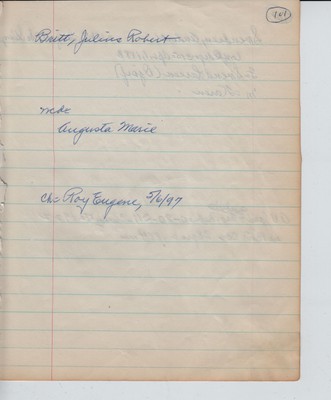 101
Britt, Julius Robert
md:
Augusta Marie
ch: Roy Eugene, 5/6/97